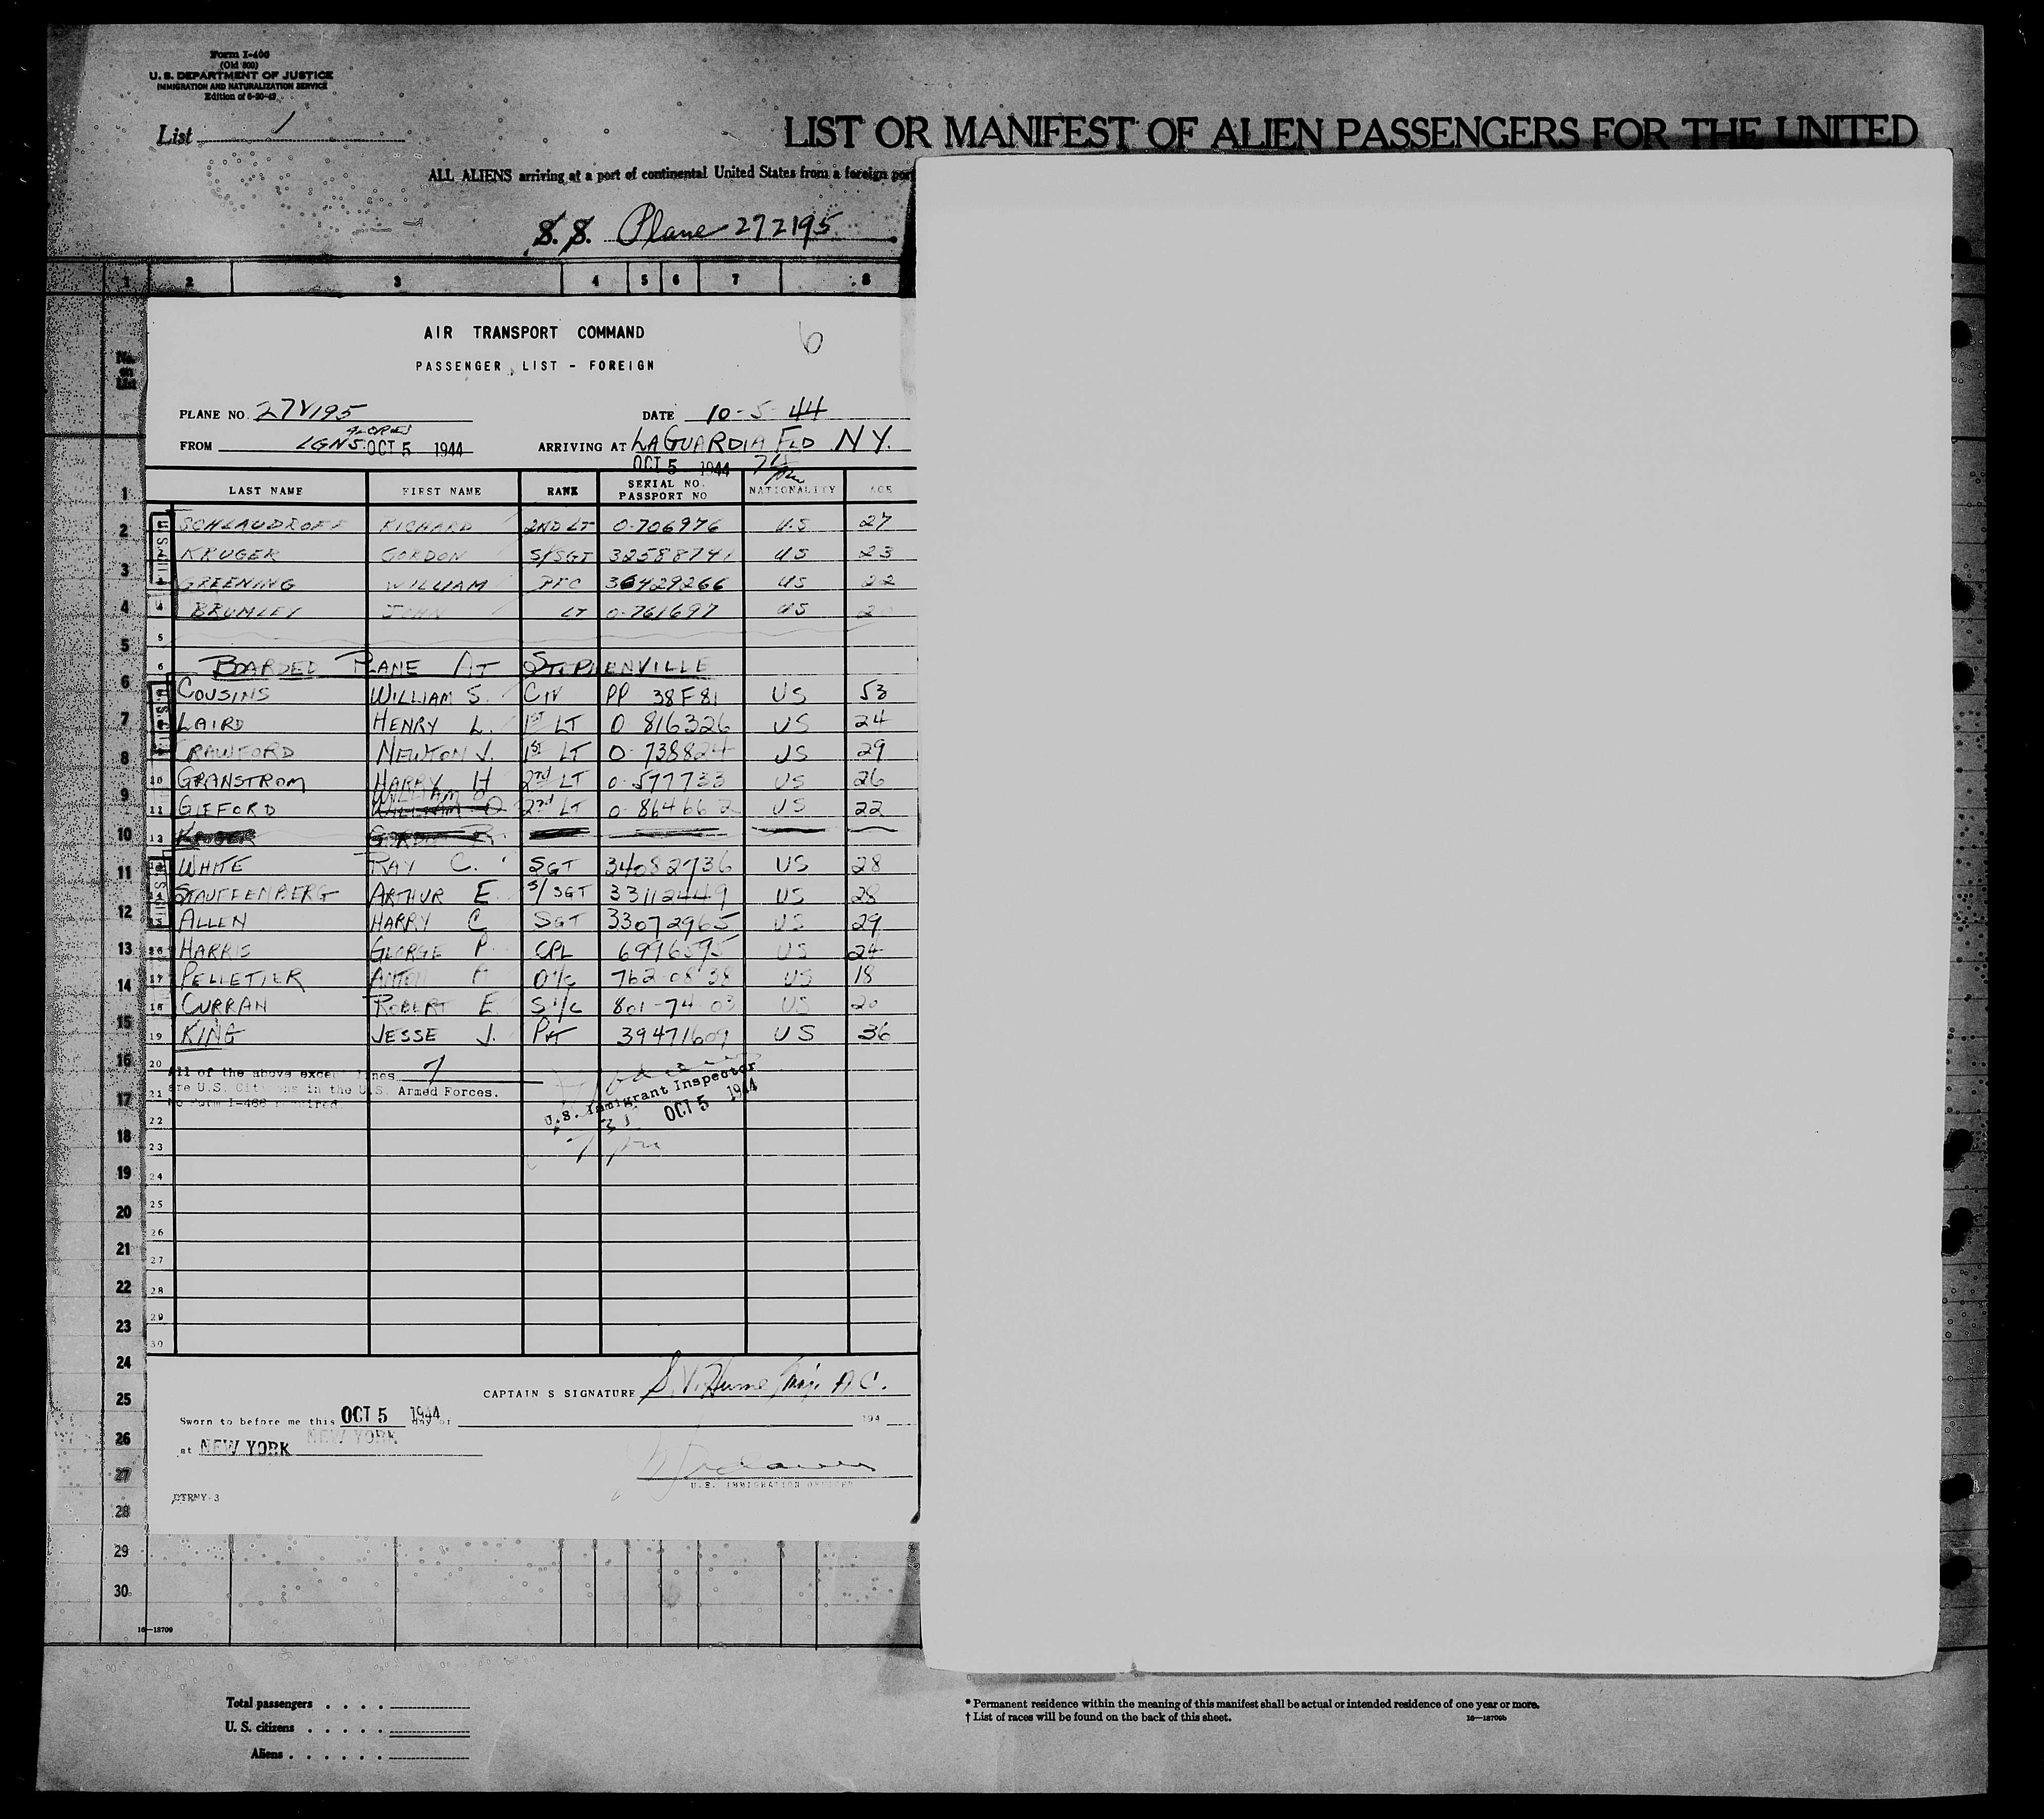 Form I-400
(Old 500)
U. S. DEPARTMENT OF JUSTICE
IMMIGRATION AND NATURALIZATION SERVICE
Edition of 6-20-42
List 1
LIST OR MANIFEST OF ALIEN PASSENGERS FOR THE UNITED
ALL ALIENS arriving at a port of continental United States from a foreign port
S. S. Plane 272195
1 2 3 4 5 6 7 8
AIR TRANSPORT COMMAND 6
PASSENGER LIST - FOREIGN
No. on List
PLANE NO. 272195 DATE 10-5-44
FROM LGNS OCT 5 1944 ARRIVING AT LAGUARDIA FLD N.Y.
OCT 5 1944
LAST NAME FIRST NAME RANK SERIAL NO. PASSPORT NO NATIONALITY AGE
SCHLAUDROFF RICHARD 2ND LT 0-706976 U.S 27
KRUGER GORDON S/SGT 32588741 US 23
GREENING WILLIAM PFC 36429266 US 22
4 BRUMLEY JOHN LT 0-761697 US 20
5
6 BOARDED PLANE AT STEPHENVILLE
COUSINS WILLIAM S. CIV PP 38F81 US 53
LAIRD HENRY L. 1ST LT 0 816326 US 24
CRAWFORD NEWTON J. 1ST LT 0-738824 US 29
10 GRANSTROM HARRY H 2nd LT 0-577733 US 26
11 GIFFORD WILLIAM O 2nd LT 0-864662 US 22
12
WHITE RAY C. SGT 34082736 US 28
STAUFFENBERG ARTHUR E S/SGT 33112449 US 28
ALLEN HARRY C SGT 33072965 US 29
16 HARRIS GEORGE P. CPL 6996595 US 24
17 PELLETIER 762-08 38 US 18
18 CURRAN ROBERT E S1/C 801-74 03 US 20
19 KING JESSE J. Pvt 39471609 US 36
20 All of the above except lines 7
21 are U.S. Citizens in the U.S. Armed Forces.
No Form I-466 required.
U.S. Immigrant Inspector
OCT 5 1944
22
23
24
25
26
27
28
29
30
CAPTAIN S SIGNATURE S. V. Hume Maj. A.C.
Sworn to before me this OCT 5 1944 day of 194
at NEW YORK NEW YORK
U.S. IMMIGRATION OFFICER
DTRNY-3
1
2
3
4
5
6
7
8
9
10
11
12
13
14
15
16
17
18
19
20
21
22
23
24
25
26
27
28
29
30
16—18709
Total passengers . . . .
U. S. citizens . . . . .
Aliens . . . . . .
* Permanent residence within the meaning of this manifest shall be actual or intended residence of one year or more.
† List of races will be found on the back of this sheet. 16—18709b